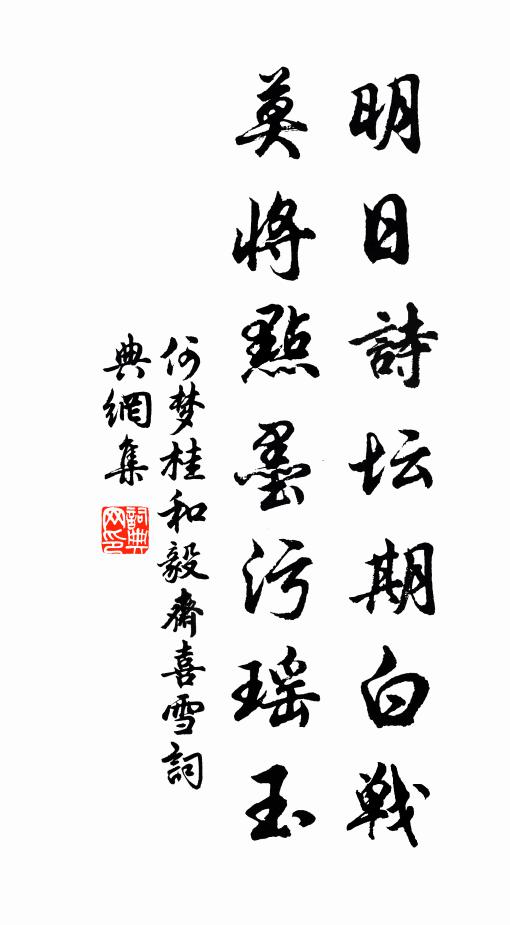 明日詩坛期白戦
莫将點墨污瑶玉
何梦桂和毅齋喜雪詞
典網集
詞典网印